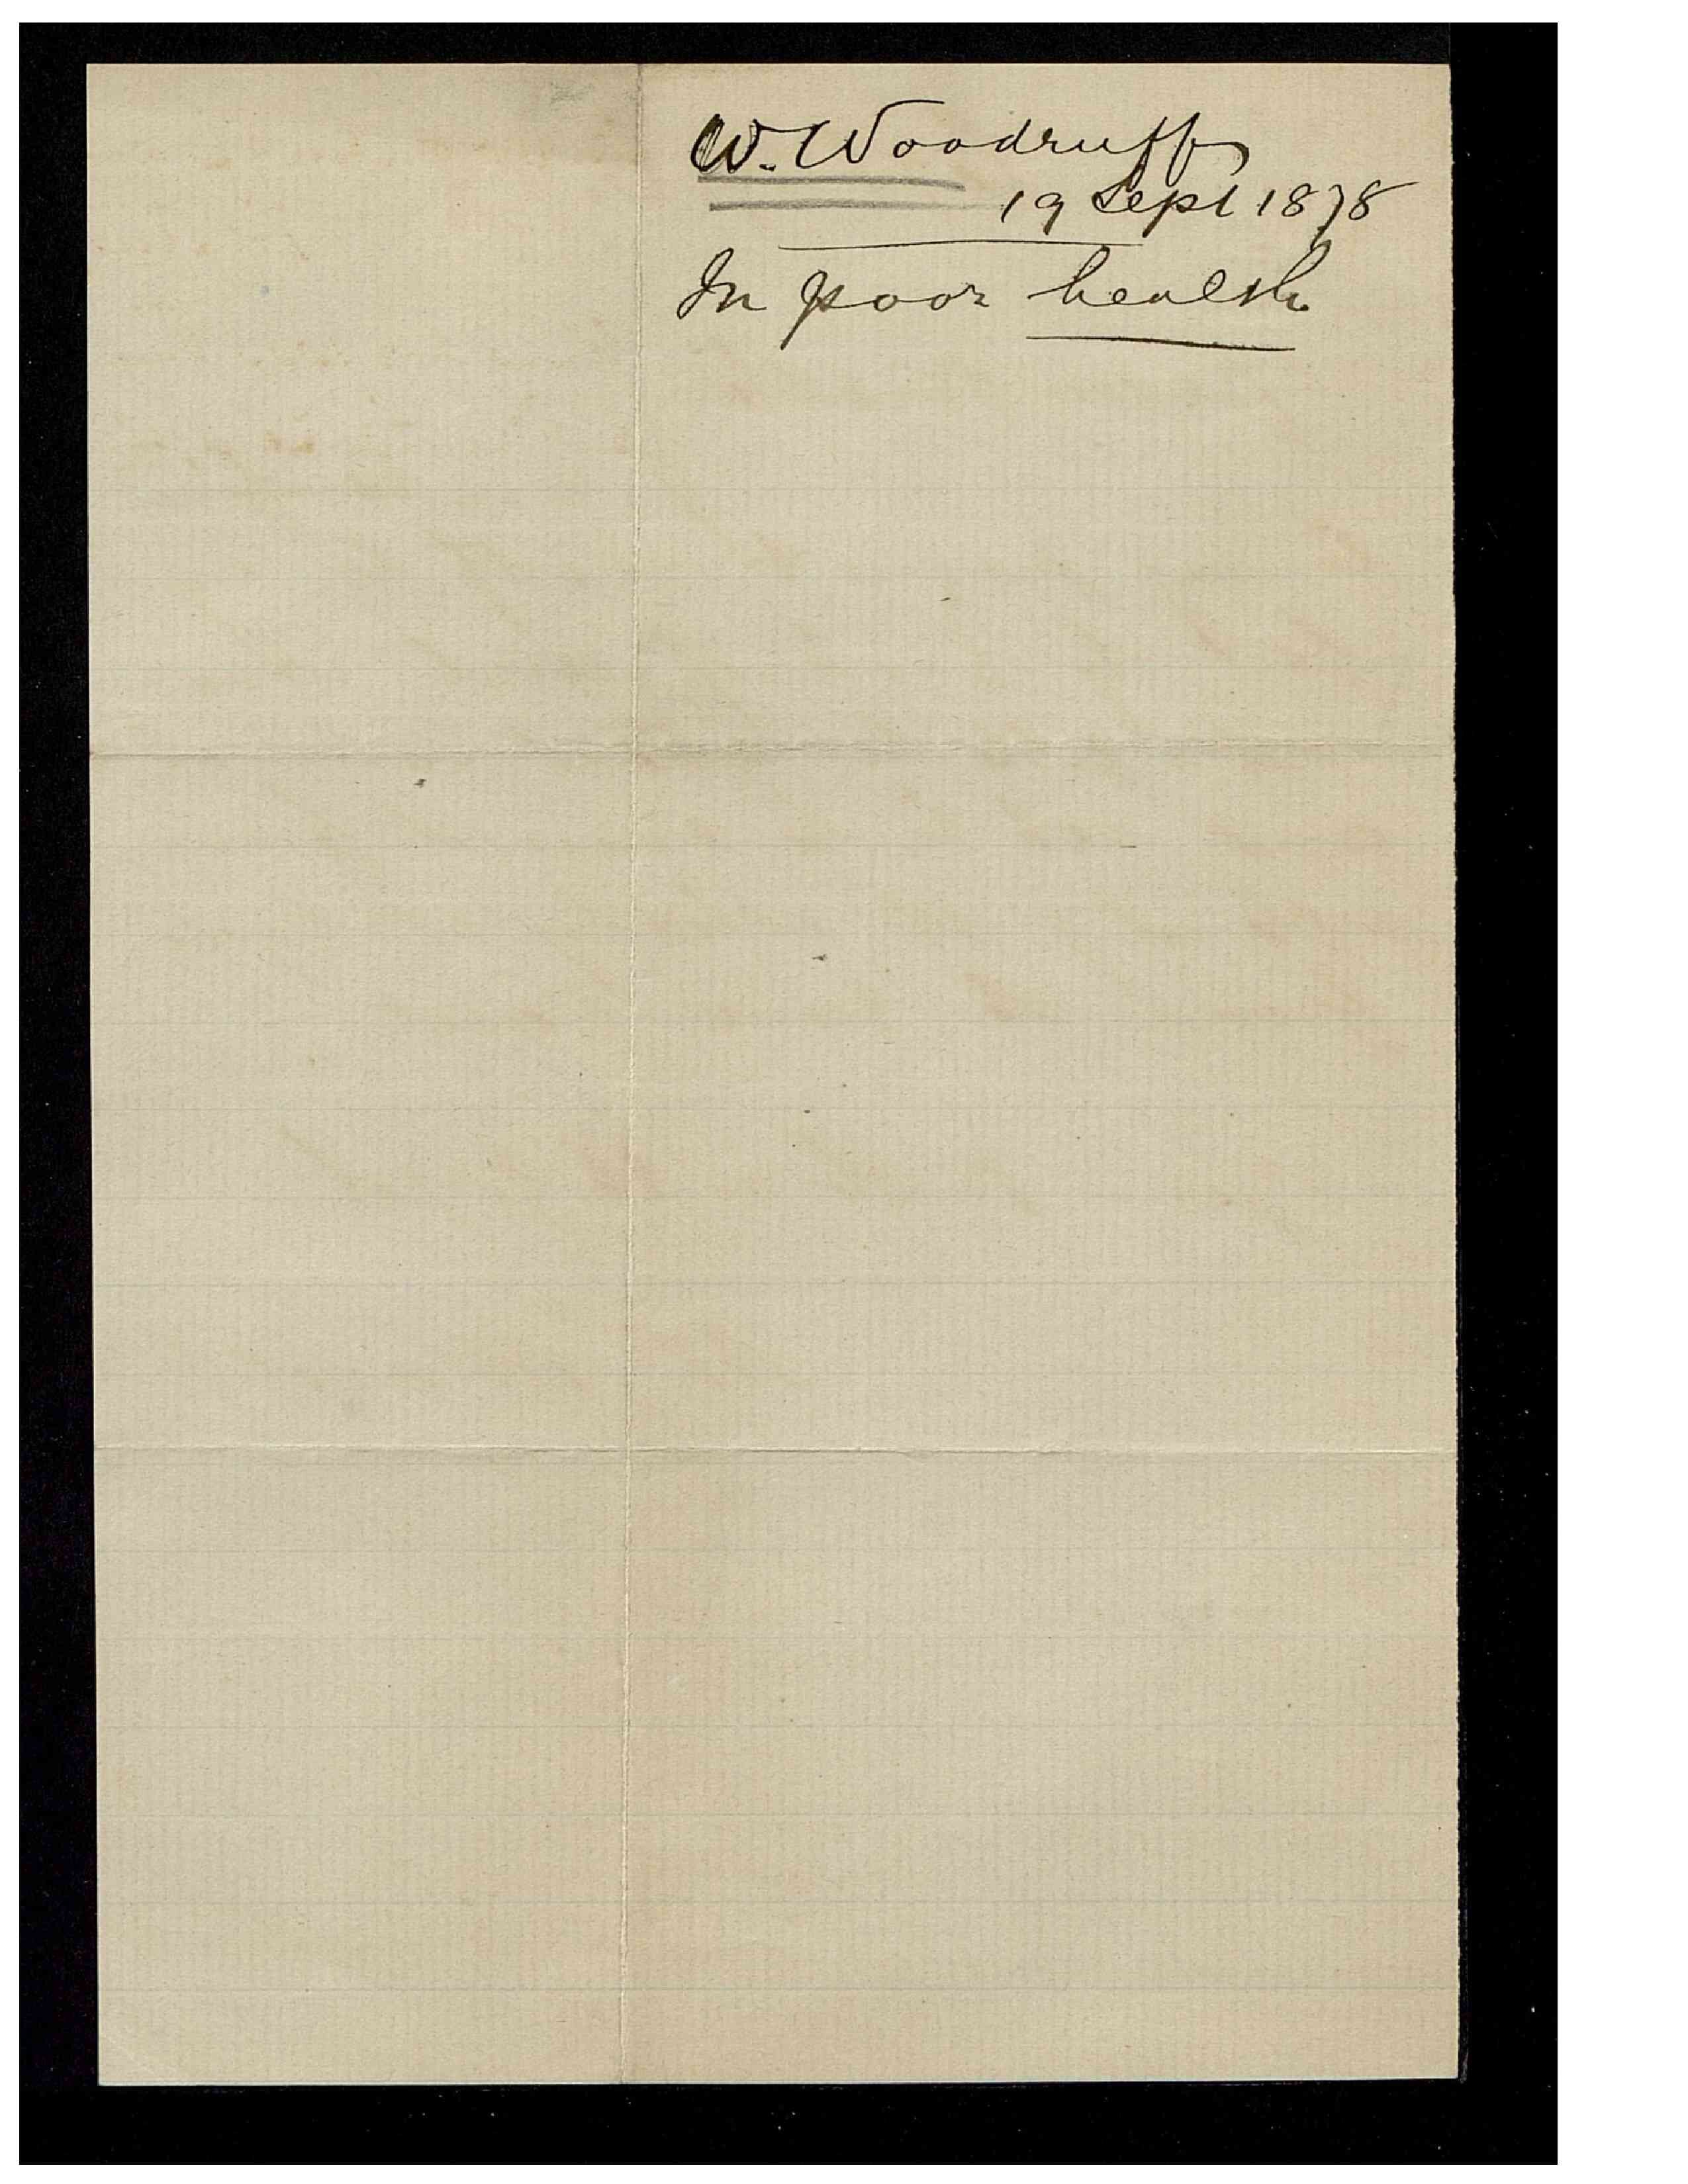 W. Woodruff
19 Sept 1878
In poor health